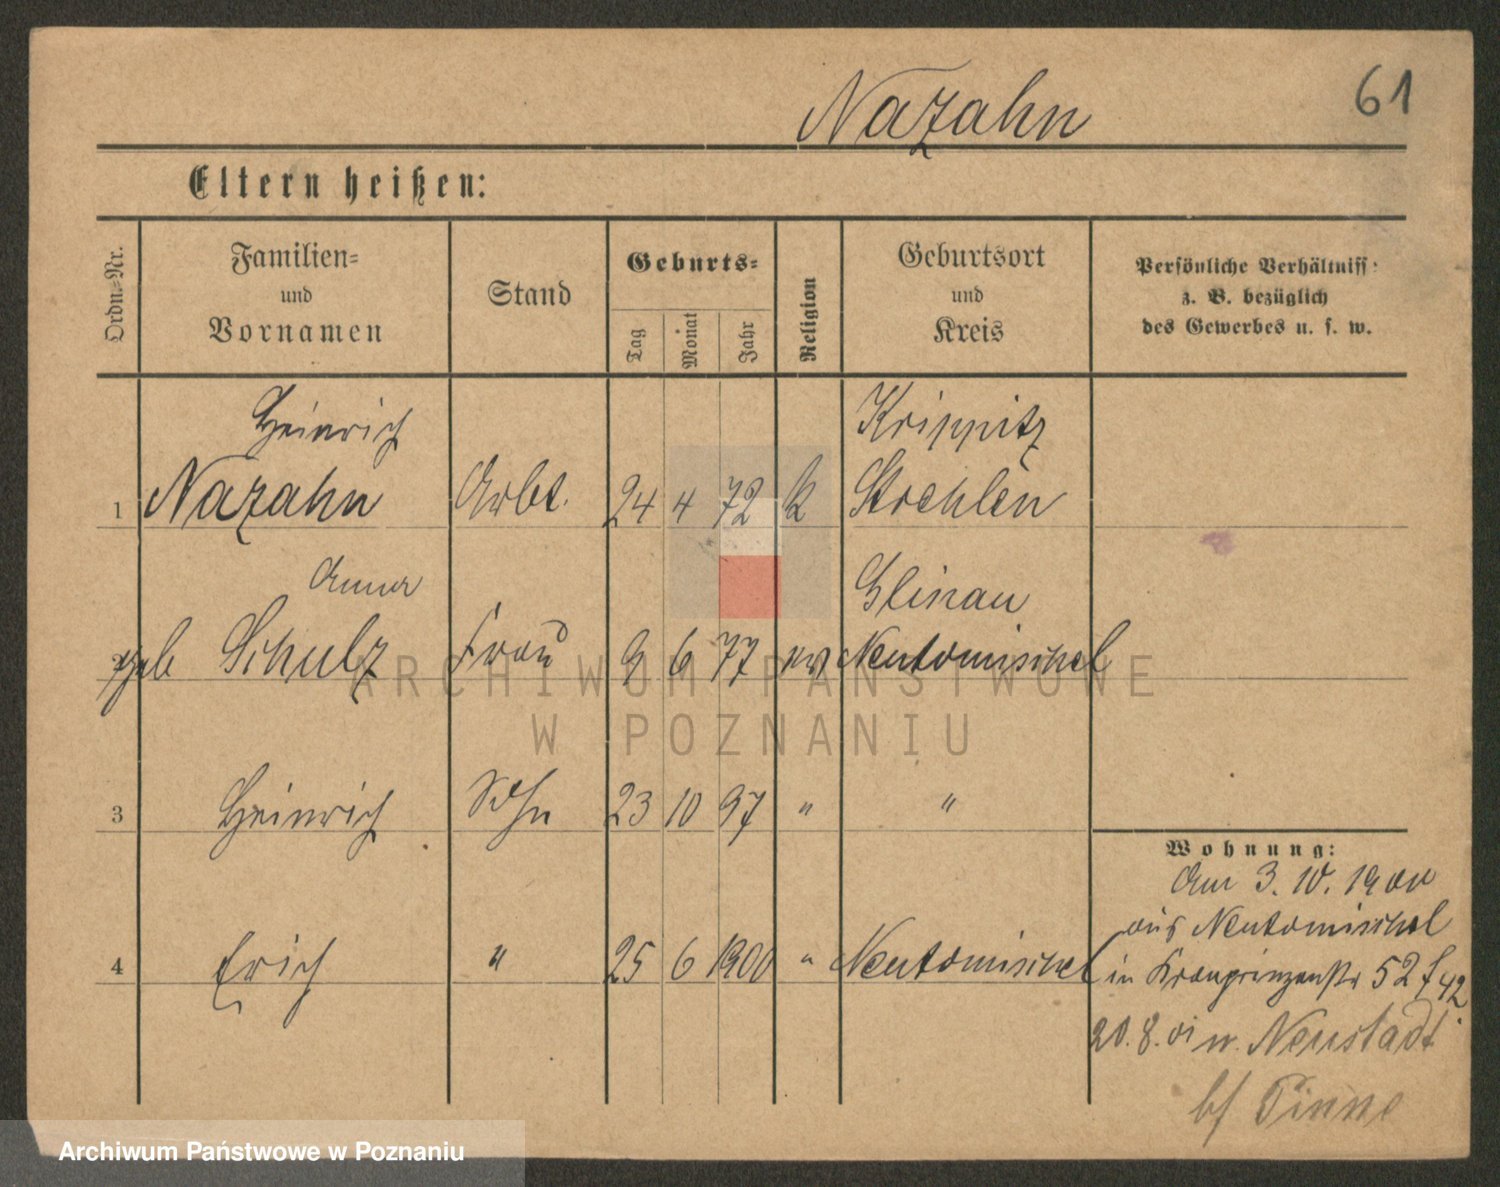 Nazahn
61
Eltern heißen:
Ordn.-Nr.
Familien-
und
Vornamen
Stand
Geburts-
Tag
Monat
Jahr
Religion
Geburtsort
und
Kreis
Persönliche Verhältniss
z. B. bezüglich
des Gewerbes u. s. w.
Heinrich Krippitz
1 Nazahn Arbt. 24 4 72 k Strehlen
Anna Glinau
geb Schulz Frau 9 6 77 ev Neutomischel
3 Heinrich Sohn 23 10 97 " "
Wohnung:
Am 3. 10. 1900
aus Neutomischel
4 Erich " 25 6 1900 " Neutomischel
in Kronprinzenstr 52
20.8.01 n. Neustadt
b/ Pinne
ARCHIWUM PAŃSTWOWE
W POZNANIU
Archiwum Państwowe w Poznaniu